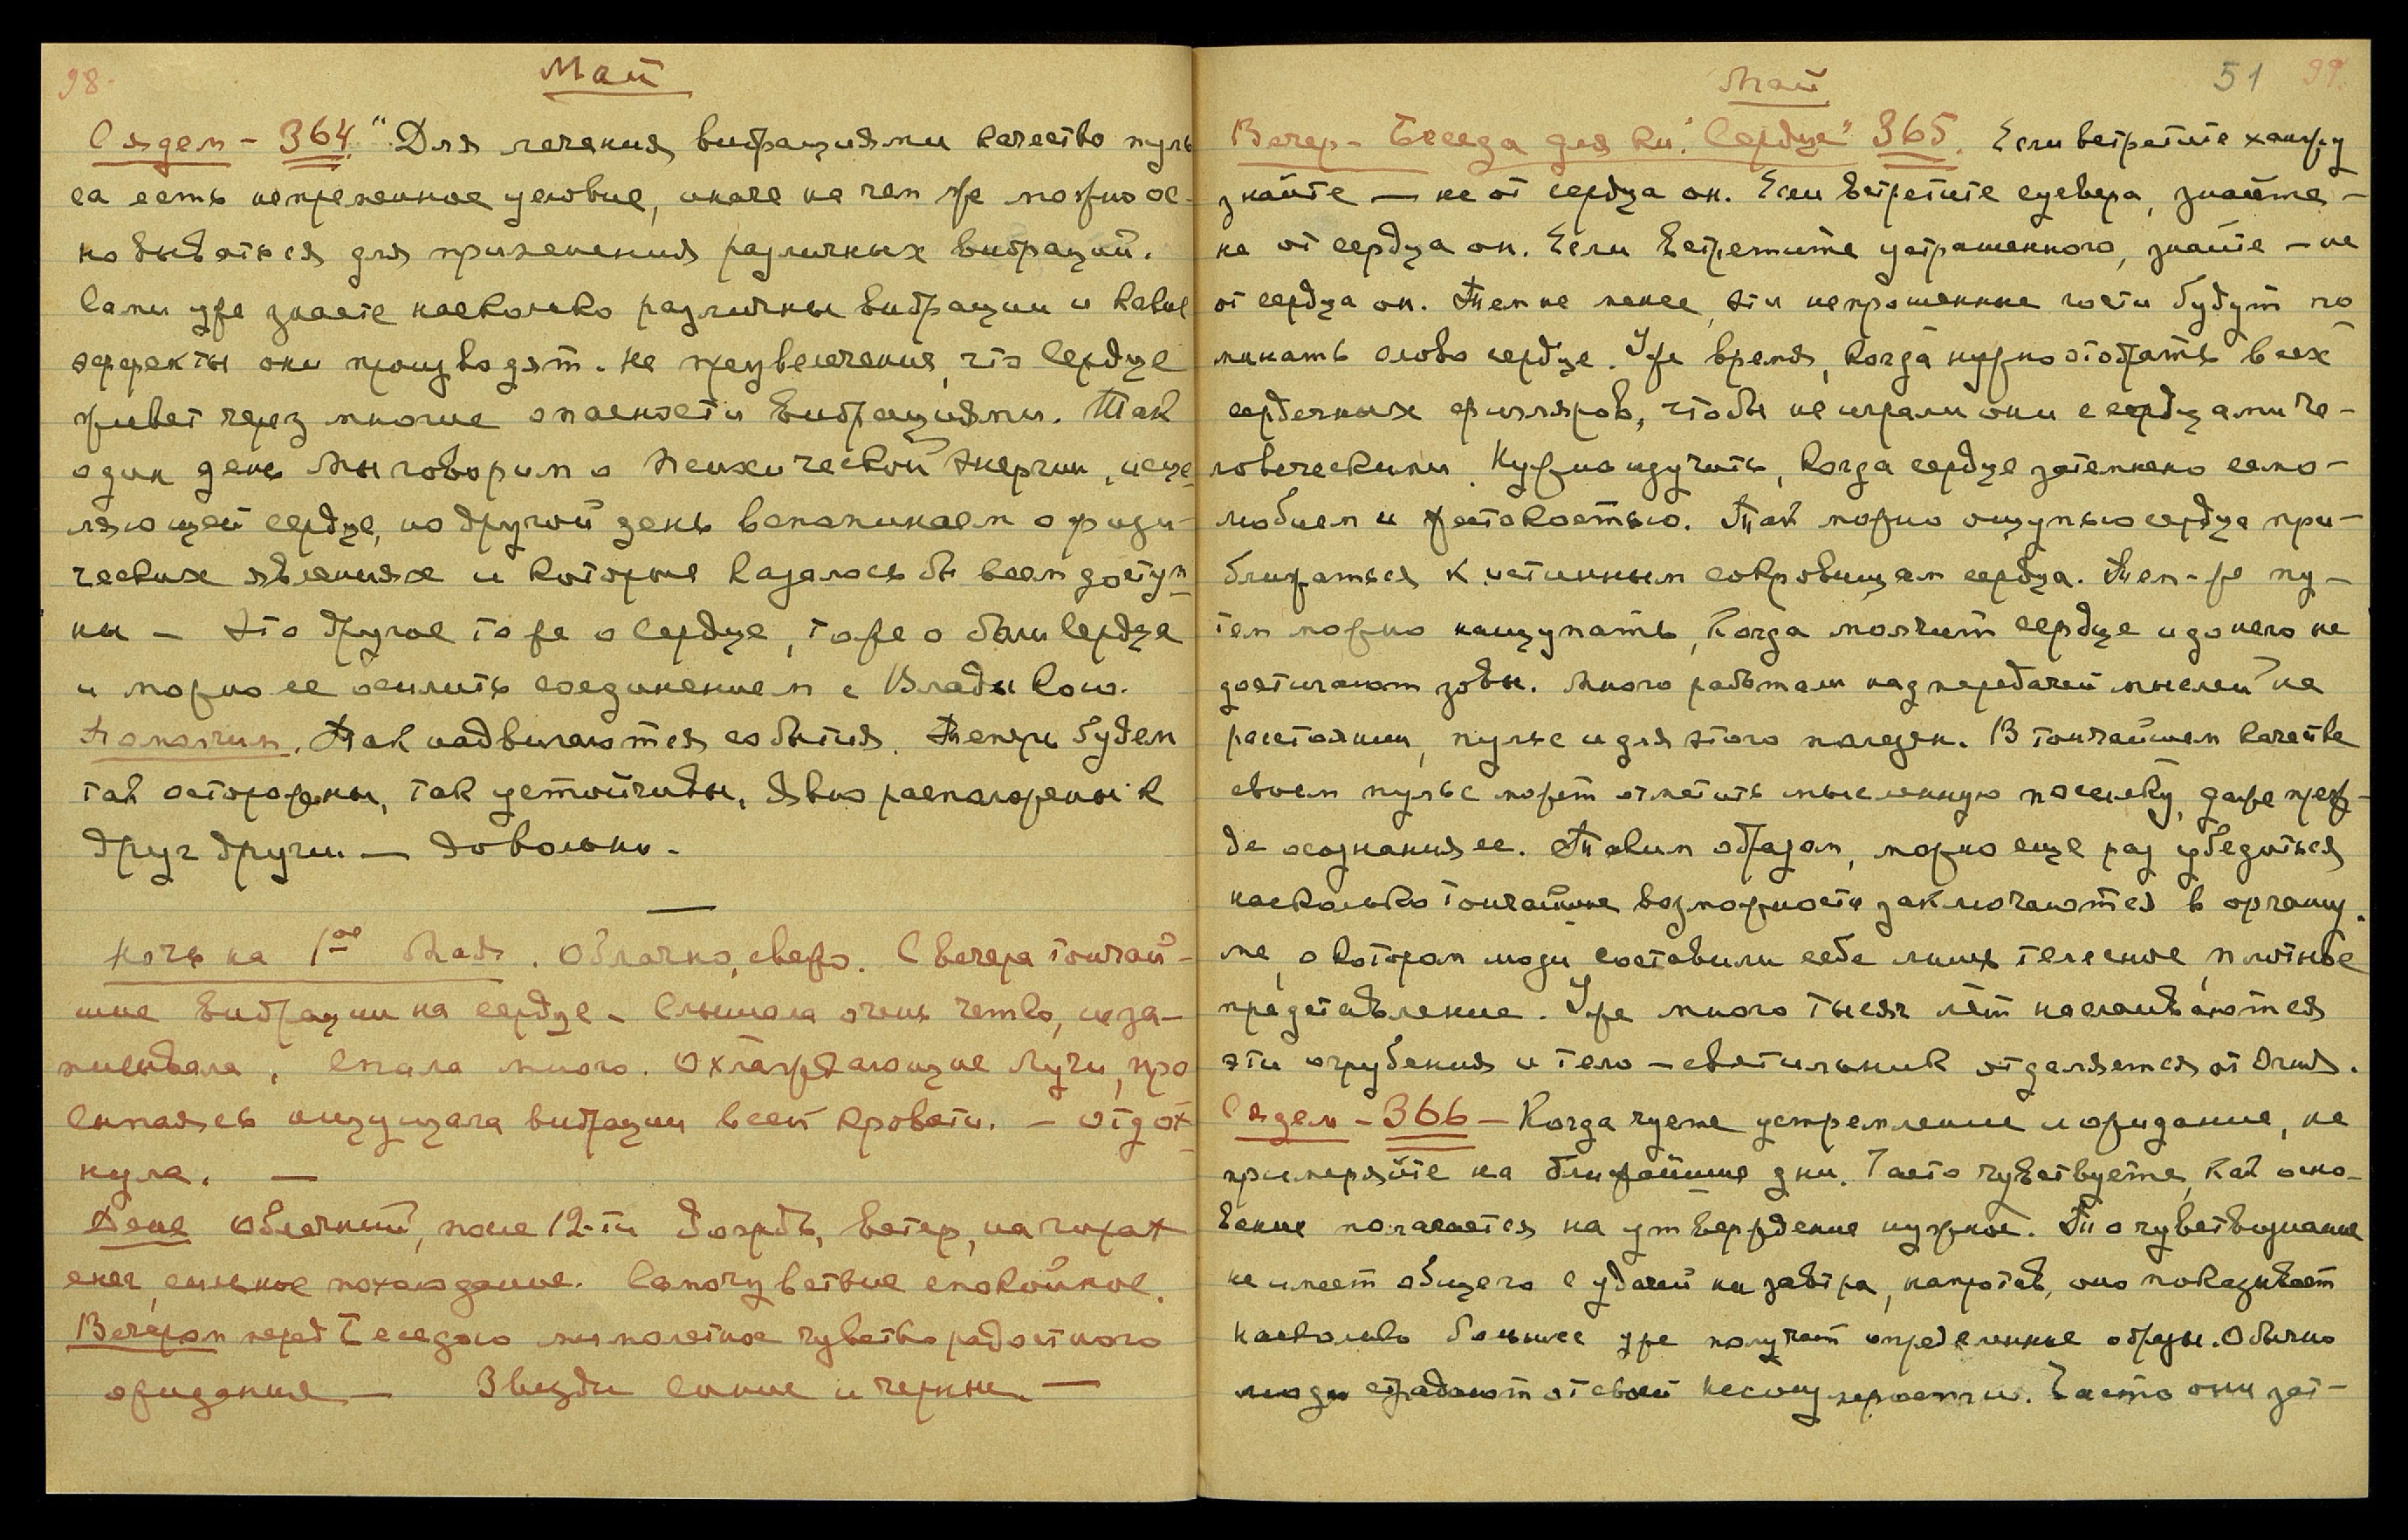 98.
Май
Сядем - 364. "Для лечения вибрациями качество пуль
са есть непременное условие, иначе не чем же можно ос-
новываться для применения различных вибраций.
Сами уже знаете насколько различны вибрации и какие
эффекты они производят. Не преувеличение, что Сердце
живет через многие опасности вибрациями. Так
один день Мы говорим о Психической Энергии, исце-
ляющей сердце, но другой день вспоминаем о физи-
ческих явлениях и которые казалось бы всем доступ-
ны — Это другое тоже о Сердце, тоже о боли Сердца
и можно ее осилить соединением с Владыкою.
Помолчим. Так надвигаются события. Теперь будем
так осторожны, так устойчивы, явно расположены к
друг другу. — Довольно.
Ночь на 1ое Мая. Облачно, свежо. С вечера тончай-
шие вибрации на сердце - Слышала очень четко, не за-
писывала, спала много. Охлаждающие Лучи, про
сыпаясь ощущала вибрации всей кровати. — Отдох-
нула. —
День облачный, после 12-ти Дождь, ветер, на горах
снег, сильное похолодание. Самочувствие спокойное.
Вечером перед Беседою мимолетное чувство радостного
ожидания — Звезды синие и черные. —
Май
51 99.
Вечер - Беседа для кн. "Сердце" 365. Если встретите ханжу
знайте — не от сердца он. Если встретите суевера, знайте —
не от сердца он. Если встретите устрашенного, знайте — не
от сердца он. Тем не менее, эти непрошенные гости будут по
минать слово сердце. Уже время, когда нужно отобрать всех
сердечных фигляров, чтобы не играли они с сердцами че-
ловеческими. Нужно изучить, когда сердце затемнено само-
любием и жестокостью. Так можно ощупью сердца при-
ближаться к истинным сокровищам сердца. Тем-же пу-
тем можно нащупать, когда молчит сердце и до него не
достигают зовы. Много работали над передачей мыслей на
расстоянии, пульс и для этого полезен. В тончайшем качестве
своем пульс может отметить мысленную посылку, даже преж-
де осознания ее. Таким образом, можно еще раз убедиться
насколько тончайшие возможности заключаются в организ-
ме, о котором люди составили себе лишь телесное, плотное
представление. Уже много тысяч лет наслаиваются
эти огрубения и тело — светильник отделяется от Огня.
Сядем - 366 — Когда чуете устремление и ожидание, не
примеряйте на ближайшие дни. Часто чувствуете, как осно-
вание полагается на утверждение нужное. То чувствознание
не имеет общего с удачей на завтра, напротив, оно показывает
насколько большее уже получает определенные образы. Обычно
люди страдают от своей несоизмеримости. Часто они зат-